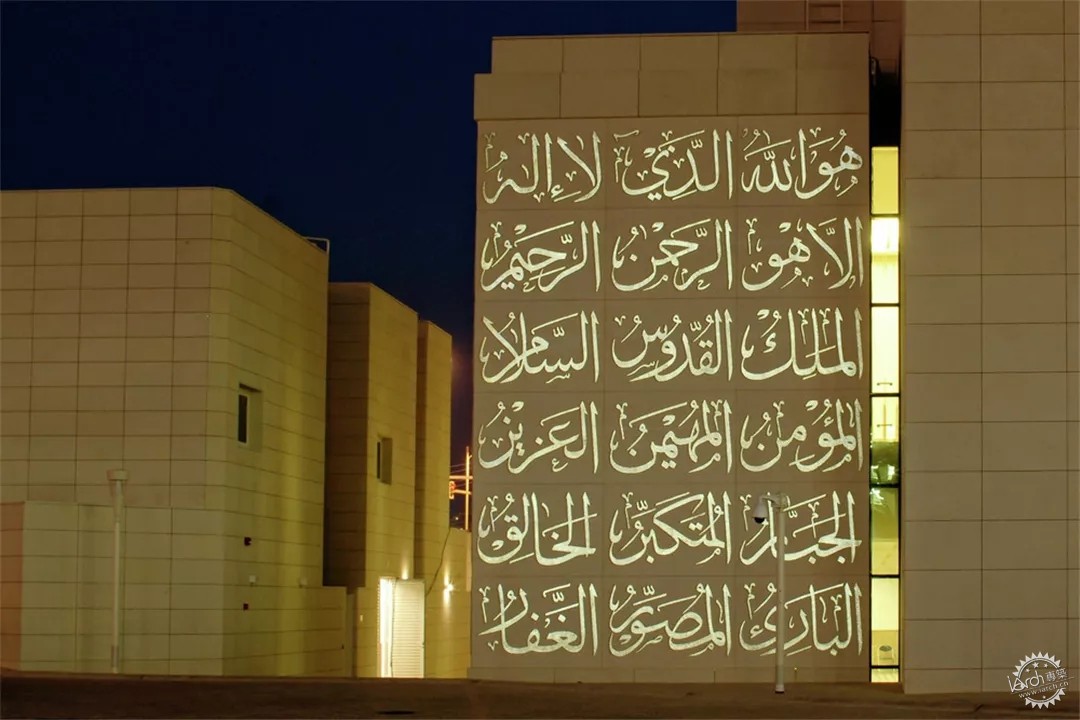 هُوَ اللّٰهُ الَّذِي لَا إِلٰهَ
إِلَّا هُوَ الرَّحْمٰنُ الرَّحِيْمُ
الْمَلِكُ الْقُدُّوسُ السَّلَامُ
الْمُؤْمِنُ الْمُهَيْمِنُ الْعَزِيْزُ
الْجَبَّارُ الْمُتَكَبِّرُ الْخَالِقُ
الْبَارِئُ الْمُصَوِّرُ الْغَفَّارُ
iarch專築
www.iarch.cn